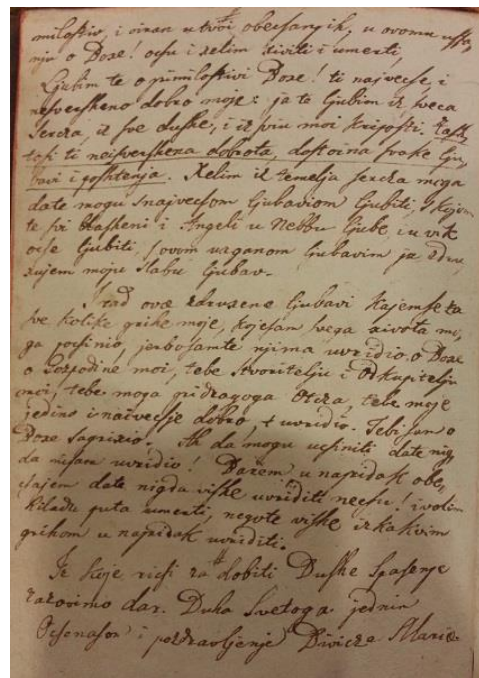 milostiv, i viran u tvoi obechanjih, u ovomu uffa
nju o Boxe! ochu i xelim xiviti i umerti,
Ljubim te o primilostivi Boxe! ti najvechse i
neisversheno dobro moje: ja te ljubim iz svega
Serza, iz sve dushe, i iz sviu moi kriposti.
tosi ti neisvershena dobrota, dostoina svake lju
bavi i poshtenja. Xelim iz temelja serza moga
date mogu snajvechom ljubaviom ljubiti, skojom
te svi blaxeni i Angeli u Nebbu ljube, i u vik
oche ljubiti, s ovom uxganom ljubaviom ja zdru,
xujem moju slabu ljubav.
S tad ove zdruxene ljubavi kajemse za
sve kolike grihe moje, kojesam svega xivota mo,
ga pochinio, jerbosamte njima uvridio o Boxe
o Gospodine moi, tebe Stvoritelju i Odkupitelju
moi, tebe moga pridragoga Otcza, tebe moje
jedino i najvechje dobro, uvridio. Tebi sam o
Boxe sagrixio. Ah da mogu uchiniti date nig,
da nisam uvridio! Barem u napridak obe,
chajem date nigda vishe uvriditi nechu! i volim
hiladu puta umerti, negote vishe izkakvim
grihom u napridak uvriditi.
Iz koje richi za dobiti Dushe Spasenje
zazovimo dar. Duha Svetoga jednim
Ocsenasom i pozdravljenje Divicza Marie